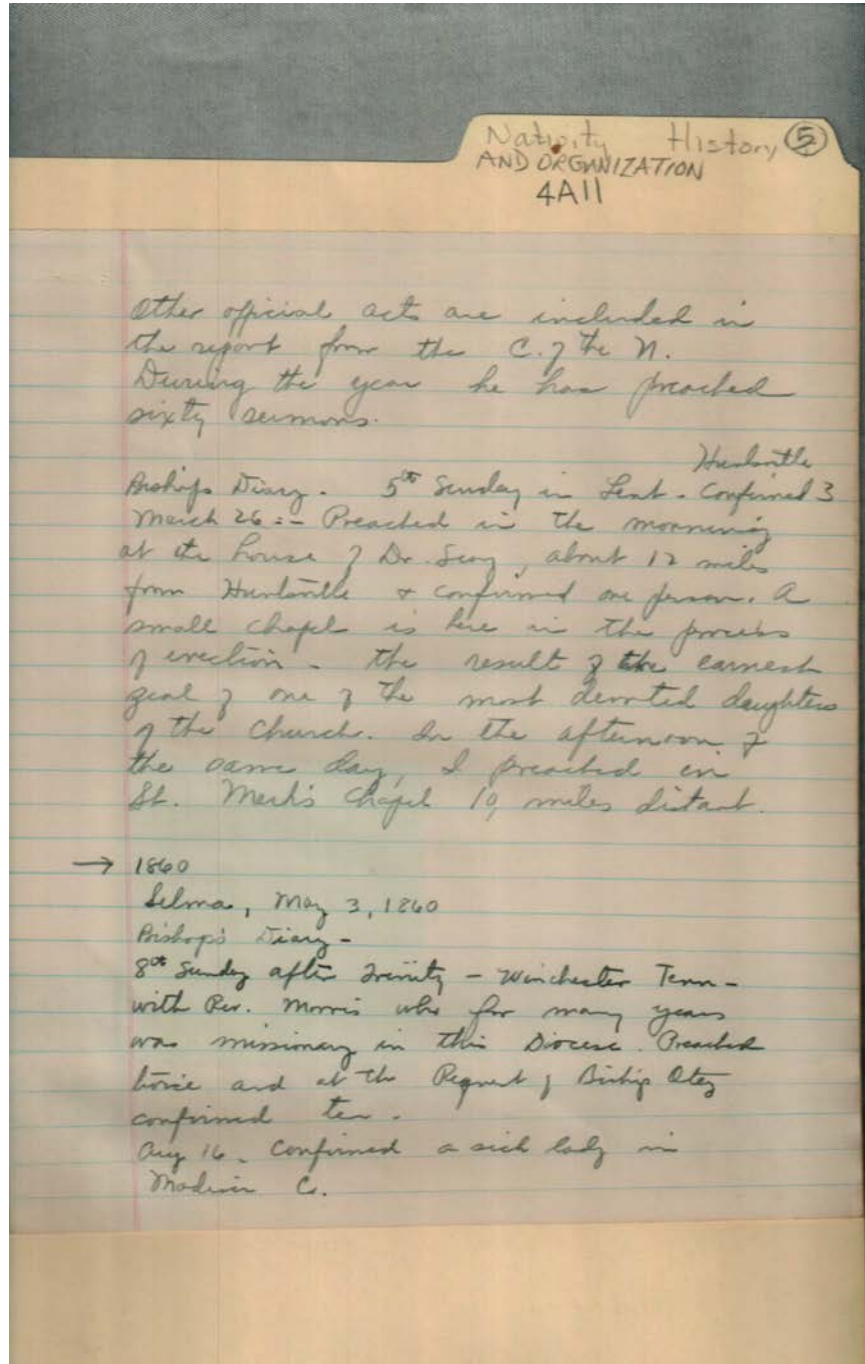 Nativity History 5
AND ORGANIZATION
4A11
Other official acts are included in
the report from the C. of the N.
During the year he has preached
sixty sermons.
Huntsville
Bishop's Diary. 5th Sunday in Lent - Confirmed 3
March 26 :- Preached in the morning
at the house of Dr. about 12 miles
from Huntsville & confirmed one person. A
small chapel is here in the process
of erection - the result of the earnest
zeal of one of the most devoted daughters
of the Church. In the afternoon of
the same day, I preached in
St. Mark's Chapel 10 miles distant.
→ 1860
Selma, May 3, 1860
Bishop's Diary -
8th Sunday after Trinity - Winchester Tenn -
with Rev. Morris who for many years
was missionary in this Diocese. Preached
twice and at the Request of Bishop Otey
confirmed ten.
Aug 16 - Confirmed a sick lady in
Madison C.